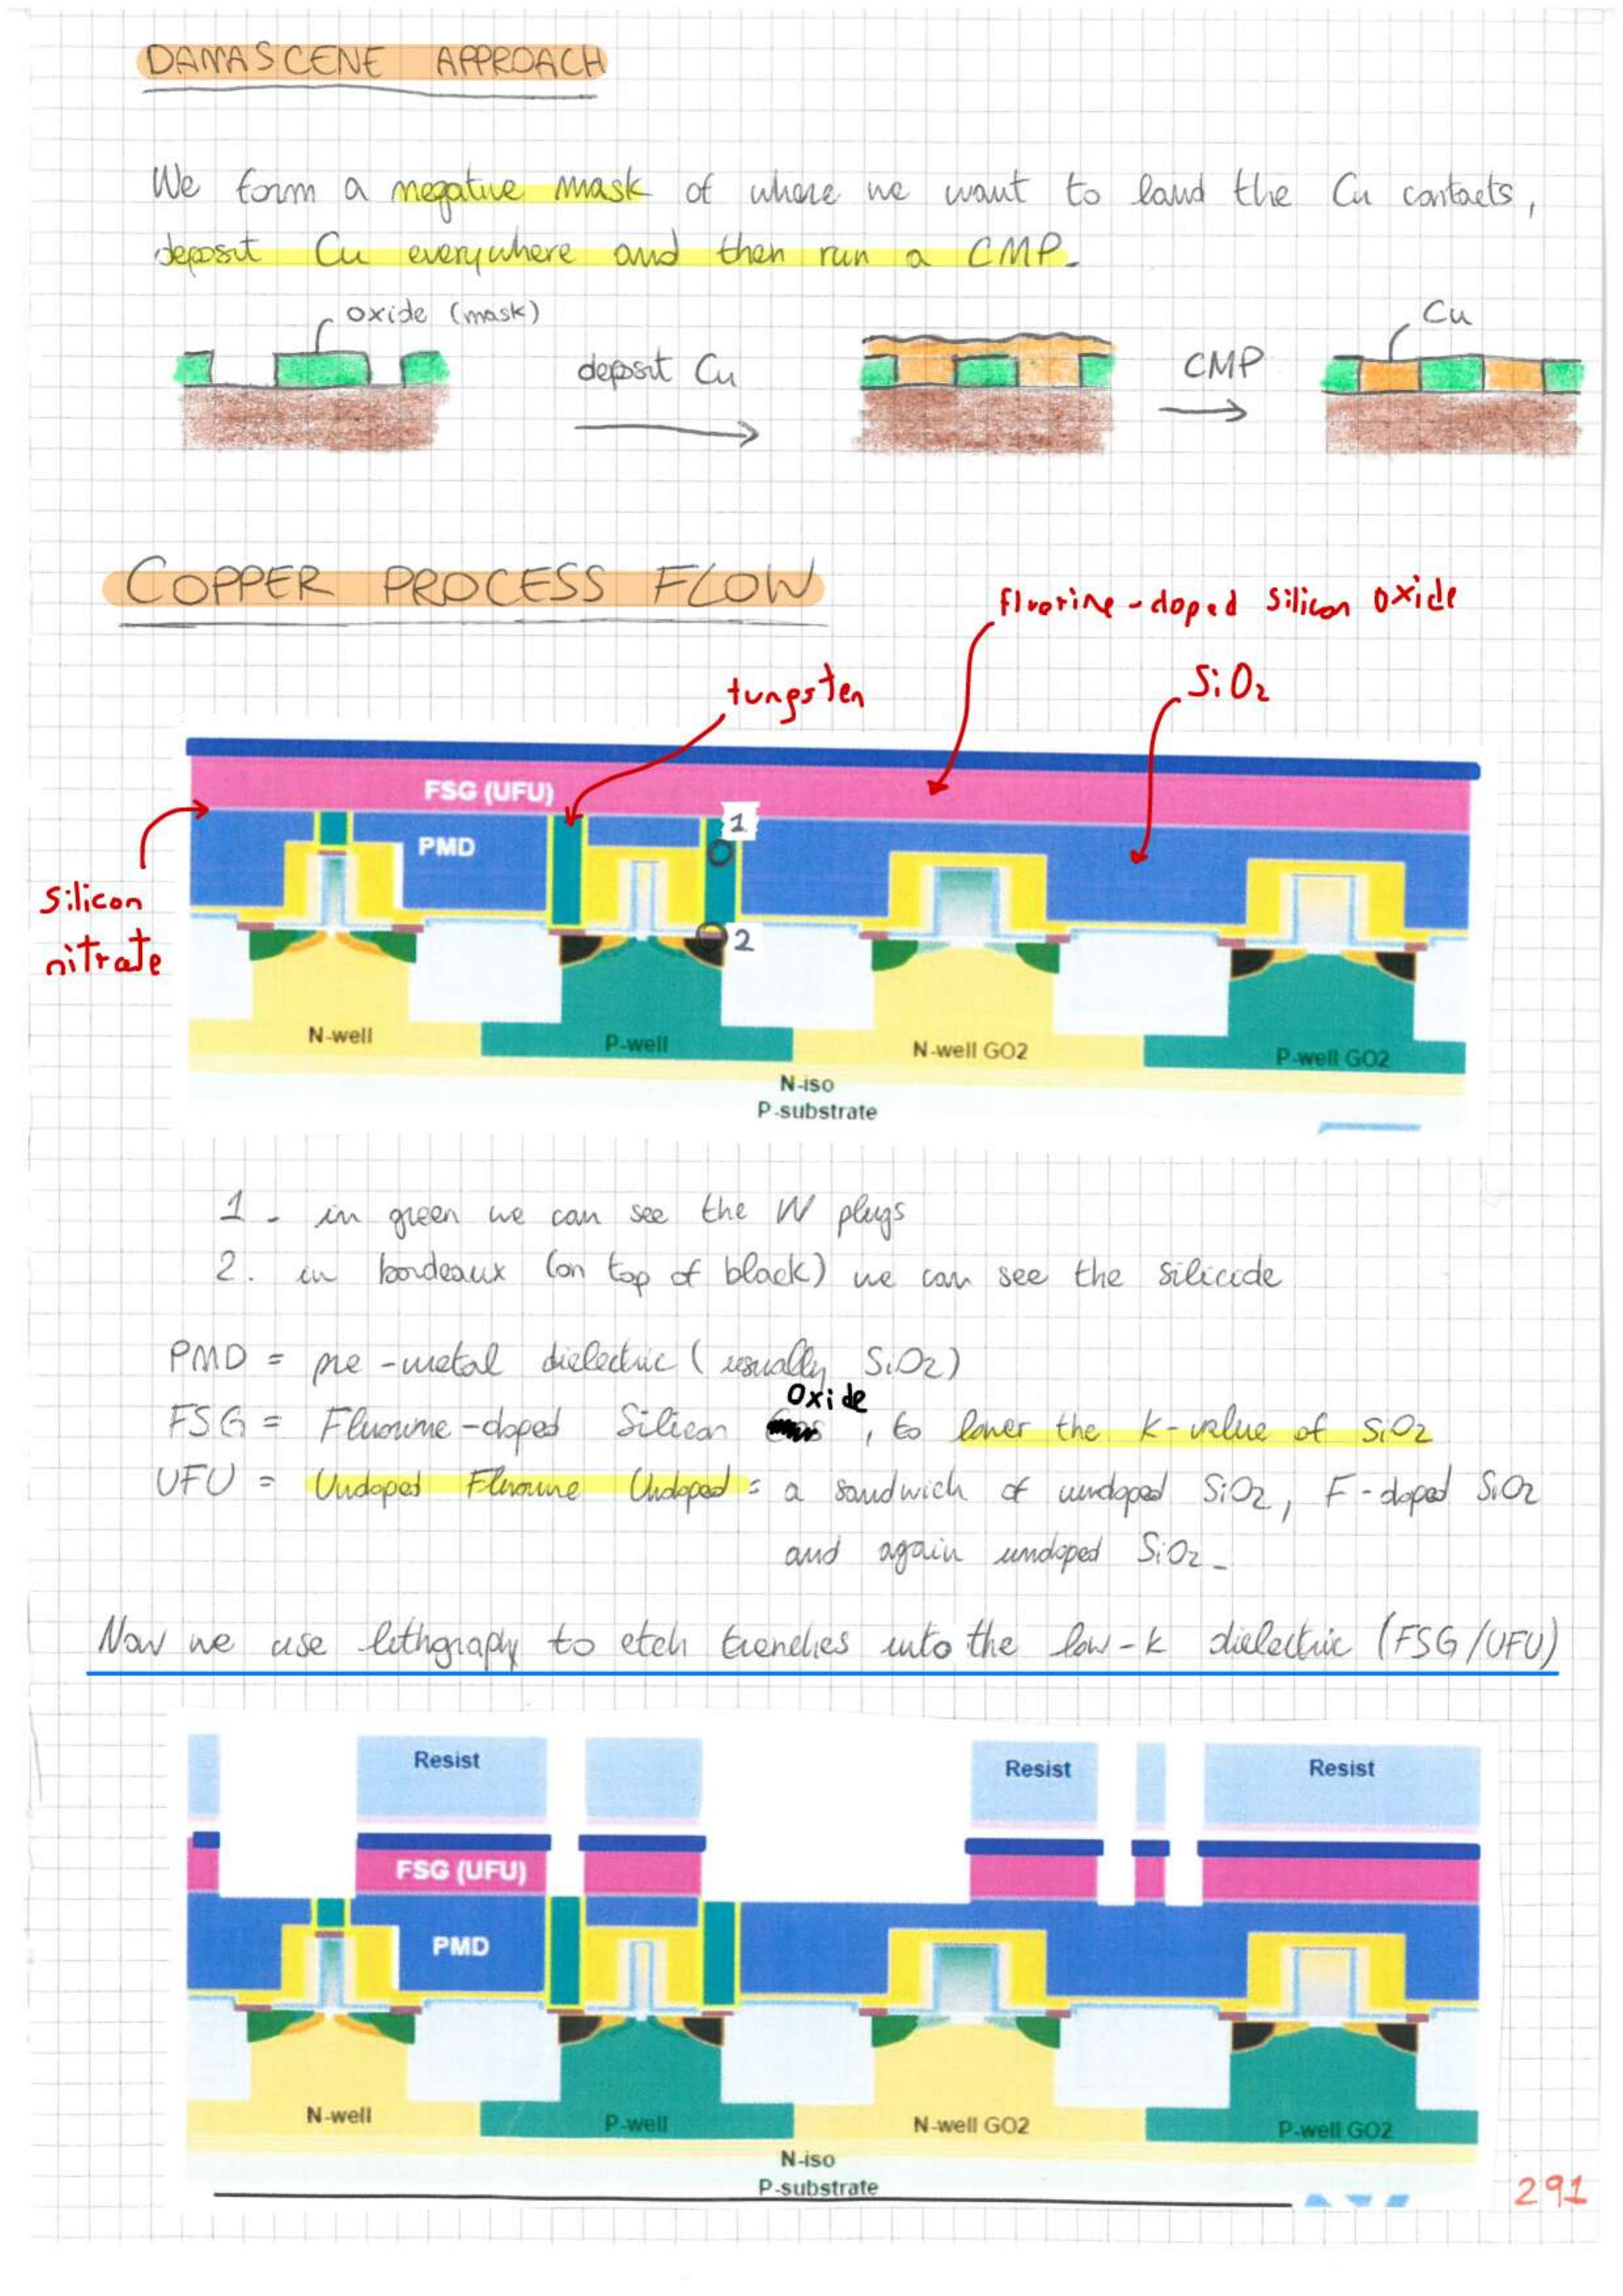 DAMASCENE APPROACH
We form a negative mask of where we want to land the Cu contacts,
deposit Cu everywhere and then run a CMP.
oxide (mask)
deposit Cu
CMP
Cu
COPPER PROCESS FLOW
fluorine-doped silicon oxide
tungsten
SiO2
FSG (UFU)
1
PMD
silicon
nitrate
2
N-well
P-well
N-well GO2
P-well GO2
N-iso
P-substrate
1 - in green we can see the W plugs
2. in bordeaux (on top of black) we can see the silicide
PMD = pre-metal dielectric (usually SiO2)
FSG = Fluorine-doped Silicon Oxide, to lower the K-value of SiO2
UFU = Undoped Fluorine Undoped = a sandwich of undoped SiO2, F-doped SiO2
and again undoped SiO2-
Now we use lithgraphy to etch trenches into the low-k dielectric (FSG/UFU)
Resist
Resist
Resist
FSG (UFU)
PMD
N-well
P-well
N-well GO2
P-well GO2
N-iso
P-substrate
291